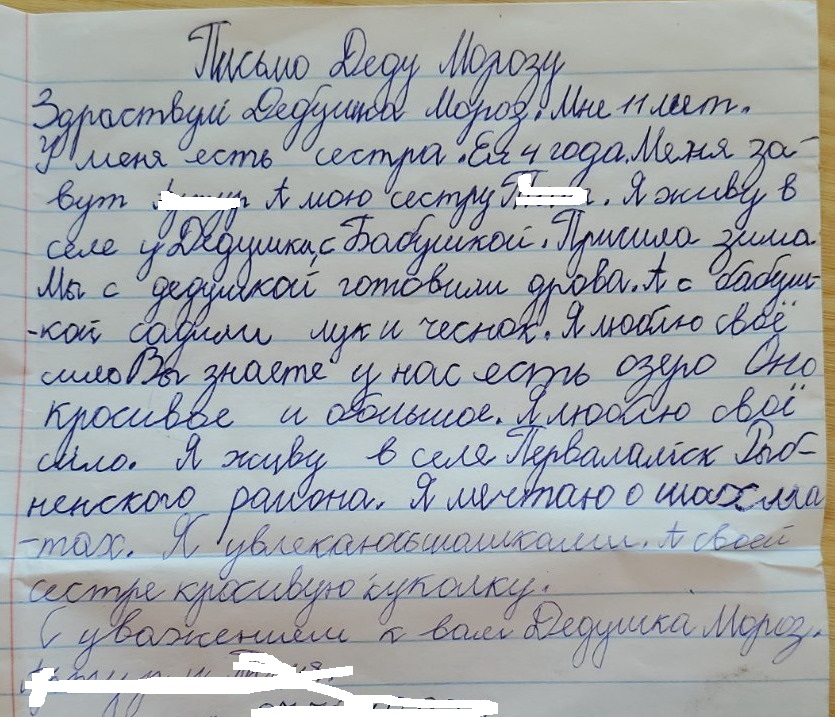 Письмо Деду Морозу
Здраствуй Дедушка Мороз. Мне 11 лет.
У меня есть сестра. Ей 4 года. Меня за-
вут А мою сестру Я живу в
селе у Дедушки, с Бабушкой. Пришла зима
Мы с дедушкой готовили дрова. А с бабуш-
-кой садили лук и чеснок. Я люблю своё
село Вы знаете у нас есть озеро Оно
красивое и большое. Я люблю своё
село. Я живу в селе Рыб-
ненского района. Я мечтаю о шахма
-тах. Я увлекаюсь шашками. А своей
сестре красивую куколку.
С уважением к вам Дедушка Мороз.